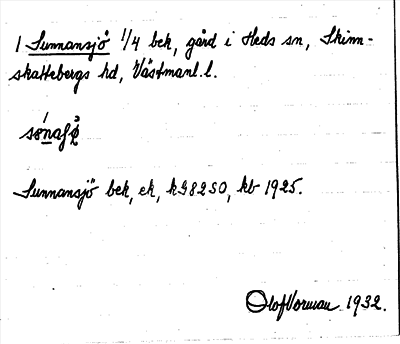 1 Sunnansjö 1/4 bek, gård i Heds sn, Skinn-
skattebergs hd, Västmanl. l.
Sunnansjö bek, ek, kG8250, kb 1925.
Olof Vorman 1932.